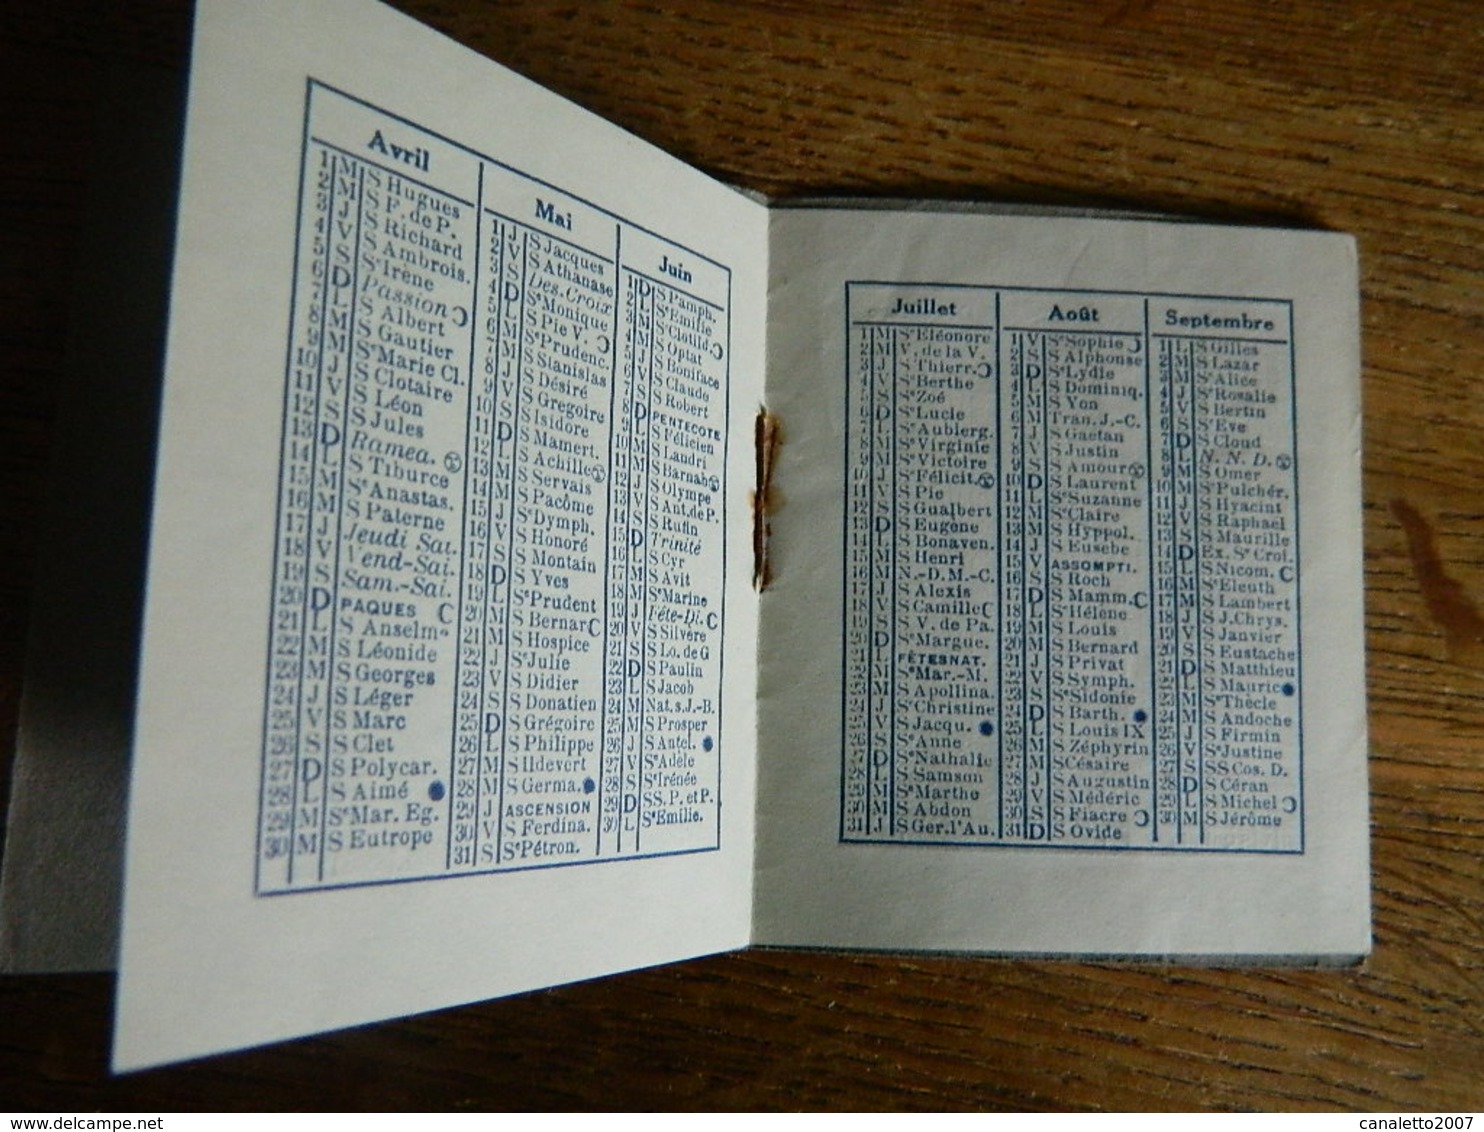 Avril
1 M S Hugues
2 M S F. de P.
3 J S Richard
4 V S Ambrois.
5 S Sᵉ Irène
6 D Passion
7 L S Albert
8 M S Gautier
9 M Sᵉ Marie Cl.
10 J S Clotaire
11 V S Léon
12 S S Jules
13 D Ramea.
14 L S Tiburce
15 M Sᵉ Anastas.
16 M S Paterne
17 J Jeudi Sai.
18 V Vend-Sai.
19 S Sam.-Sai.
20 D PAQUES
21 L S Anselm
22 M S Léonide
23 M S Georges
24 J S Léger
25 V S Marc
26 S S Clet
27 D S Polycar.
28 L S Aimé
29 M Sᵉ Mar. Eg.
30 M S Eutrope
Mai
1 J S Jacques
2 V S Athanase
3 S Des. Croix
4 D Sᵉ Monique
5 L S Pie V.
6 M Sᵉ Prudenc.
7 M S Stanislas
8 J S Désiré
9 V S Gregoire
10 S S Isidore
11 D S Mamert.
12 L S Achille
13 M S Servais
14 M S Pacôme
15 J Sᵉ Dymph.
16 V S Honoré
17 S S Montain
18 D S Yves
19 L Sᵉ Prudent
20 M S Bernar
21 M S Hospice
22 J Sᵉ Julie
23 V S Didier
24 S S Donatien
25 D S Grégoire
26 L S Philippe
27 M S Ildevert
28 M S Germa.
29 J ASCENSION
30 V S Ferdina.
31 S Sᵉ Pétron.
Juin
1 D S Pamph.
2 L Sᵉ Emilie
3 M S Clotild.
4 M S Optat
5 J S Boniface
6 V S Claude
7 S S Robert
8 D PENTECOTE
9 L S Félicien
10 M S Landri
11 M S Barnab
12 J S Olympe
13 V S Ant. de P.
14 S S Rufin
15 D Trinité
16 L S Cyr
17 M S Avit
18 M Sᵉ Marine
19 J Fête-Di.
20 V S Silvère
21 S S Lo. de G
22 D S Paulin
23 L S Jacob
24 M Nat. s. J.-B.
25 M S Prosper
26 J S Antel.
27 V Sᵉ Adèle
28 S Sᵉ Irénée
29 D SS. P. et P.
30 L Sᵉ Emilie.
Juillet
1 M Sᵉ Eléonore
2 M V. de la V.
3 J S Thierr.
4 V Sᵉ Berthe
5 S Sᵉ Zoé
6 D Sᵉ Lucie
7 L Sᵉ Aubierg.
8 M Sᵉ Virginie
9 M Sᵉ Victoire
10 J Sᵉ Félicit.
11 V S Pie
12 S S Gualbert
13 D S Eugène
14 L S Bonaven.
15 M S Henri
16 M N.-D. M.-C.
17 J S Alexis
18 V S Camille
19 S S V. de Pa.
20 D Sᵉ Margue.
21 L FÊTE NAT.
22 M Sᵉ Mar.-M.
23 M S Apollina.
24 J Sᵉ Christine
25 V S Jacqu.
26 S Sᵉ Anne
27 D Sᵉ Nathalie
28 L S Samson
29 M Sᵉ Marthe
30 M S Abdon
31 J S Ger. l'Au.
Août
1 V Sᵉ Sophie
2 S S Alphonse
3 D Sᵉ Lydie
4 L S Dominiq.
5 M S Yon
6 M Tran. J.-C.
7 J S Gaetan
8 V S Justin
9 S S Amour
10 D S Laurent
11 L Sᵉ Suzanne
12 M Sᵉ Claire
13 M S Hyppol.
14 J S Eusebe
15 V ASSOMPTI.
16 S S Roch
17 D S Mamm.
18 L Sᵉ Hélène
19 M S Louis
20 M S Bernard
21 J S Privat
22 V S Symph.
23 S Sᵉ Sidonie
24 D S Barth.
25 L S Louis IX
26 M S Zéphyrin
27 M S Césaire
28 J S Augustin
29 V S Médéric
30 S S Fiacre
31 D S Ovide
Septembre
1 L S Gilles
2 M S Lazar
3 M Sᵉ Alice
4 J Sᵉ Rosalie
5 V S Bertin
6 S Sᵉ Eve
7 D S Cloud
8 L N. N. D.
9 M S Omer
10 M Sᵉ Pulchér.
11 J S Hyacint
12 V S Raphael
13 S S Maurille
14 D Ex. Sᵉ Croi.
15 L S Nicom.
16 M S Eleuth
17 M S Lambert
18 J S J. Chrys.
19 V S Janvier
20 S S Eustache
21 D S Matthieu
22 L S Mauric
23 M Sᵉ Thècle
24 M S Andoche
25 J S Firmin
26 V Sᵉ Justine
27 S SS Cos. D.
28 D S Céran
29 L S Michel
30 M S Jérôme
canaletto2007